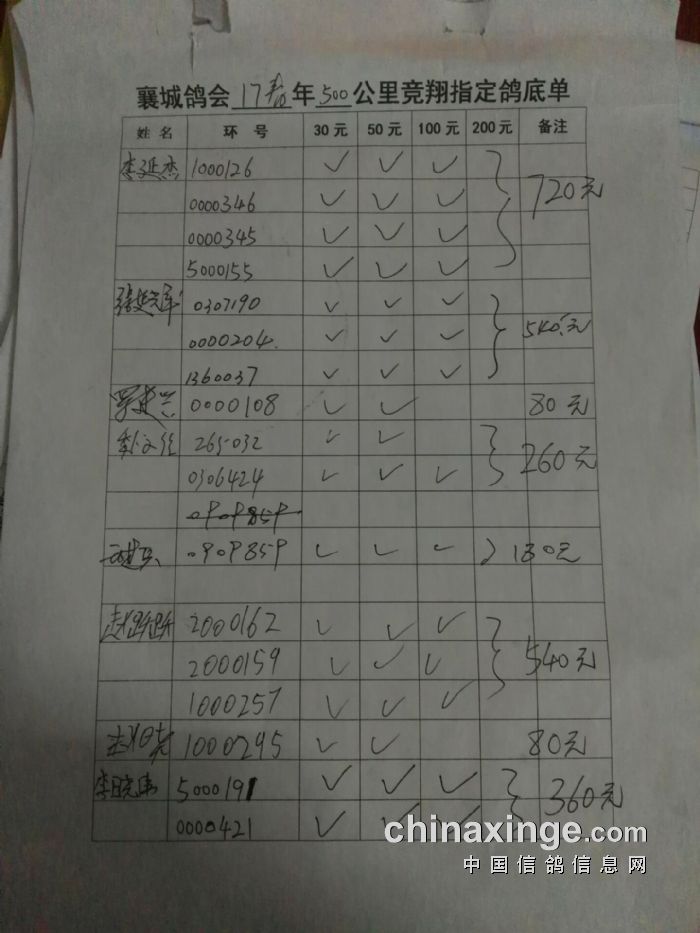 襄城鸽会 17春 年 500 公里竞翔指定鸽底单
姓 名 环 号 30 元 50 元 100 元 200 元 备注
李延杰 1000126 ✓ ✓ ✓ 720元
0000346 ✓ ✓ ✓
0000345 ✓ ✓ ✓
5000155 ✓ ✓ ✓
0307190 ✓ ✓ ✓ 540元
0000204 ✓ ✓ ✓
1360037 ✓ ✓ ✓
0000108 ✓ ✓ 80元
265032 ✓ ✓ 260元
0306424 ✓ ✓ ✓
0909859
0909859 ✓ ✓ ✓ 180元
赵跃跃 2000162 ✓ ✓ ✓ 540元
2000159 ✓ ✓ ✓
1000257 ✓ ✓ ✓
1000295 ✓ ✓ 80元
李晓伟 5000191 ✓ ✓ ✓ 360元
0000421 ✓ ✓ ✓
chinaxinge.com
中国信鸽信息网